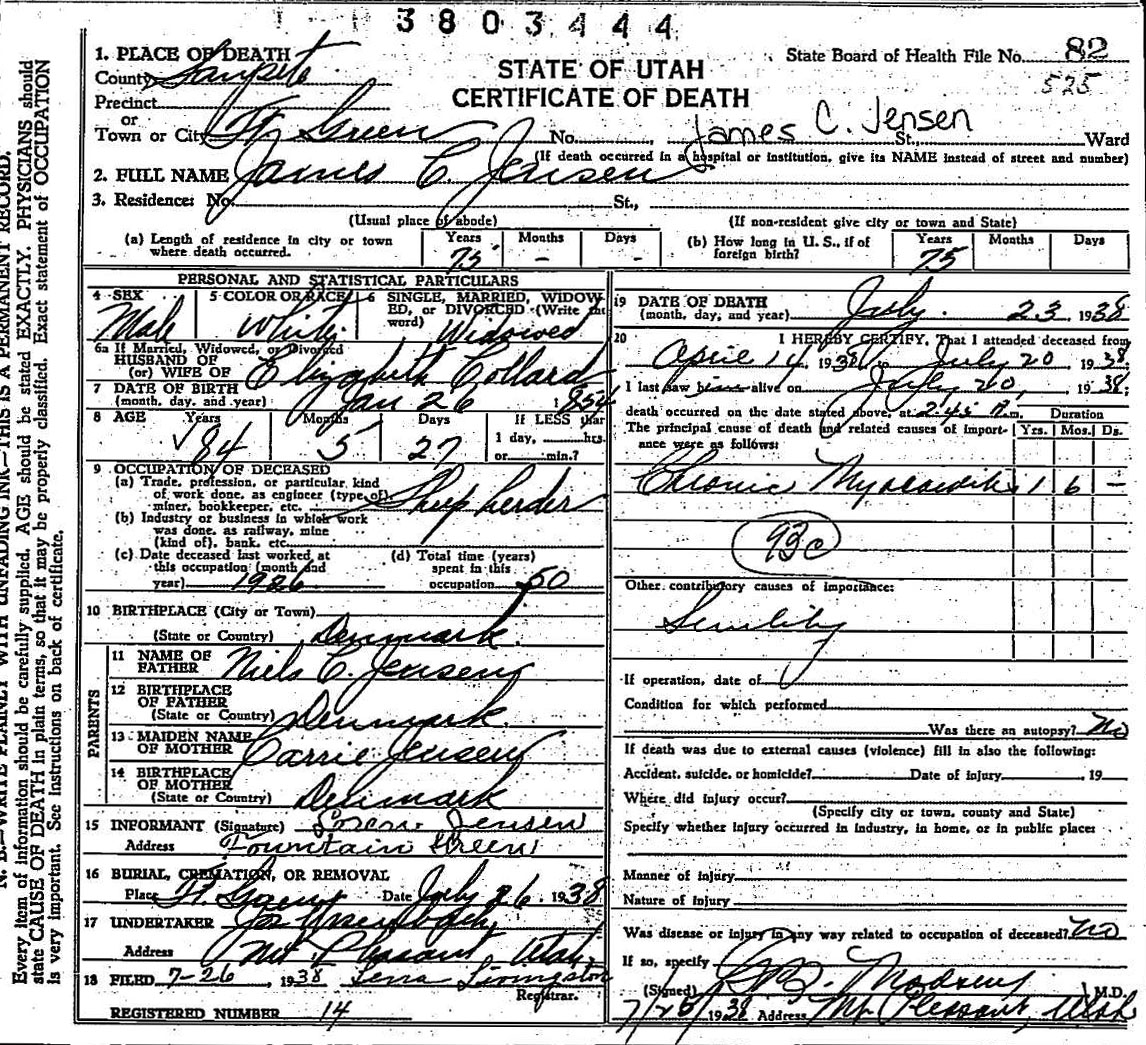 3803444
1. PLACE OF DEATH
County Sanpete
Precinct
or
Town or City Ft. Green No. St., Ward
STATE OF UTAH
CERTIFICATE OF DEATH
State Board of Health File No. 82
525
James C. Jensen
(If death occurred in a hospital or institution, give its NAME instead of street and number)
2. FULL NAME James C. Jensen
3. Residence: No. St.,
(Usual place of abode) (If non-resident give city or town and State)
(a) Length of residence in city or town where death occurred. Years 75 Months - Days -
(b) How long in U. S., if of foreign birth? Years 75 Months Days
PERSONAL AND STATISTICAL PARTICULARS
4 SEX Male
5 COLOR OR RACE White
6 SINGLE, MARRIED, WIDOWED, or DIVORCED (Write the word) Widowed
6a If Married, Widowed, or Divorced
HUSBAND OF
(or) WIFE OF Elizabeth Collard
7 DATE OF BIRTH
(month, day, and year) Jan 26 1854
8 AGE Years 84 Months 5 Days 27 If LESS than
1 day, hrs.
or min.?
9 OCCUPATION OF DECEASED
(a) Trade, profession, or particular kind
of work done, as engineer (type of)
miner, bookkeeper, etc. Sheep herder
(b) Industry or business in which work
was done, as railway, mine
(kind of), bank, etc.
(c) Date deceased last worked at
this occupation (month and
year) 1926
(d) Total time (years)
spent in this
occupation 50
10 BIRTHPLACE (City or Town)
(State or Country) Denmark
PARENTS
11 NAME OF
FATHER Niels C. Jensen
12 BIRTHPLACE
OF FATHER
(State or Country) Denmark
13 MAIDEN NAME
OF MOTHER Carrie Jensen
14 BIRTHPLACE
OF MOTHER
(State or Country) Denmark
15 INFORMANT (Signature) Jensen
Address Fountain Green
16 BURIAL, CREMATION, OR REMOVAL
Place Ft. Green Date July 26, 1938
17 UNDERTAKER
Address Mt. Pleasant Utah
18 FILED 7-26, 1938 Lena Livingston
Registrar.
REGISTERED NUMBER 14
19 DATE OF DEATH
(month, day, and year) July 23 1938
20 I HEREBY CERTIFY, That I attended deceased from
April 14 1938 to July 20, 1938
I last saw him alive on July 20, 1938;
death occurred on the date stated above, at 2:45 m. Duration
The principal cause of death and related causes of importance were as follows: Yrs. Mos. Ds.
Chronic Myocarditis 1 6 -
93c
Other contributory causes of importance:
Senility
If operation, date of
Condition for which performed
Was there an autopsy? No
If death was due to external causes (violence) fill in also the following:
Accident, suicide, or homicide? Date of injury , 19
Where did injury occur?
(Specify city or town, county and State)
Specify whether injury occurred in industry, in home, or in public place:
Manner of injury
Nature of injury
Was disease or injury in any way related to occupation of deceased? No
If so, specify
(Signed) Madsen M.D.
7/26/1938 Address Mt. Pleasant, Utah
N. B.—WRITE PLAINLY WITH UNFADING INK—THIS IS A PERMANENT RECORD.
Every item of information should be carefully supplied. AGE should be stated EXACTLY. PHYSICIANS should
state CAUSE OF DEATH in plain terms, so that it may be properly classified. Exact statement of OCCUPATION
is very important. See instructions on back of certificate.